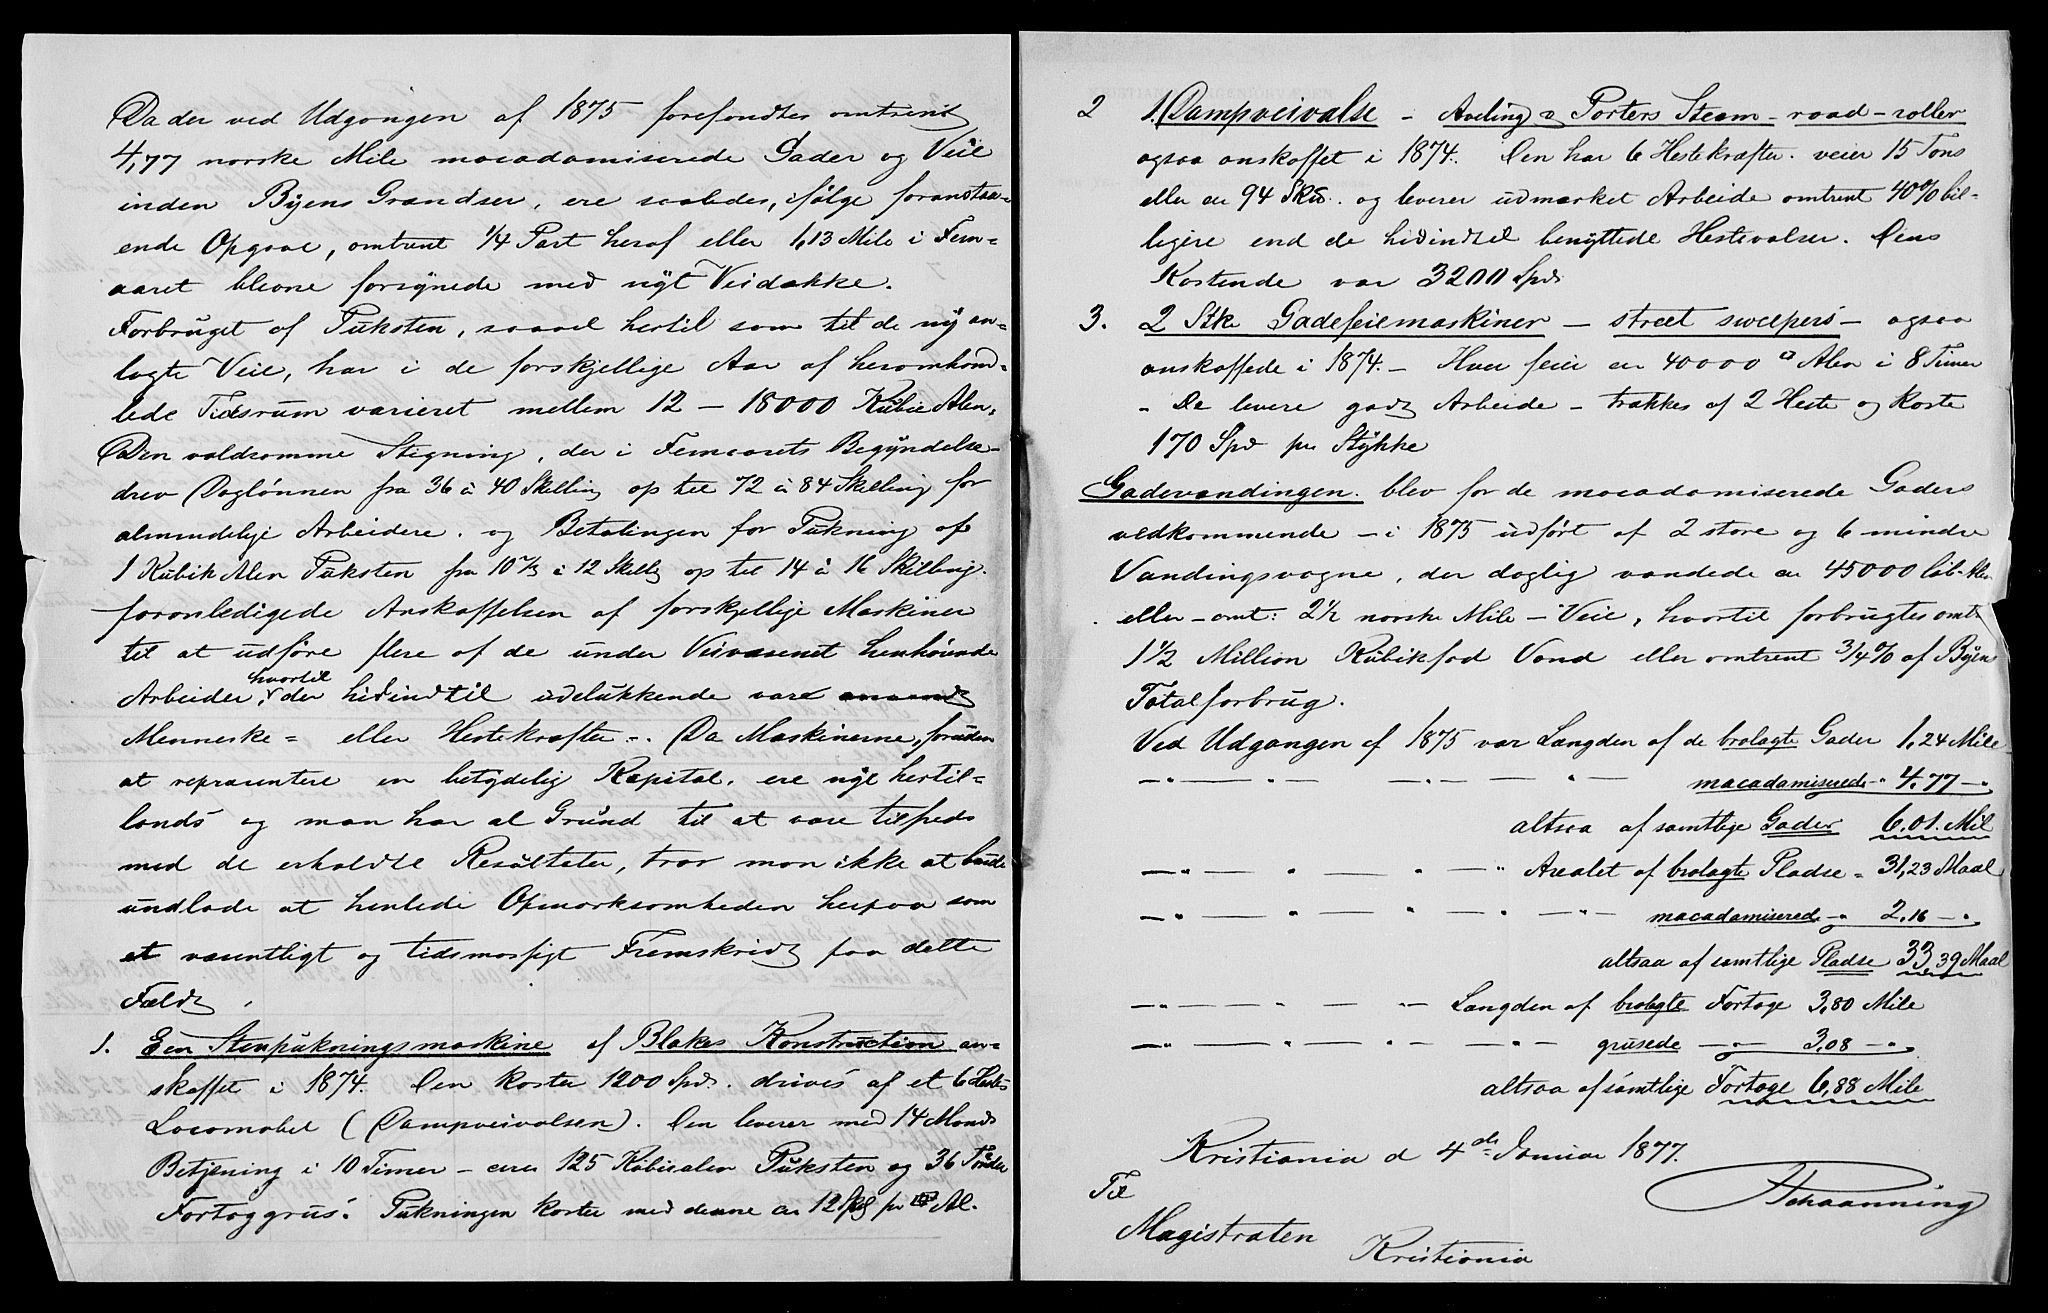 Da der ved Udgangen af 1875 forefandtes omtrent
4,77 norske Mile macadamiserede Gader og Veie
inden Byens Grændser, ere saaledes, ifølge foranstaa-
ende Opgave, omtrent 1/4 Part heraf eller 1,13 Mile i Fem-
aaret blevne forsynede med nyt Veidække.
Forbruget af Puksten, saavel hertil som til de ny an-
lagte Veie, har i de forskjellige Aar af heromhand-
lede Tidsrum varieret mellem 12 – 18000 Kubic Alen.
Den voldsomme Stigning, der i Femaarets Begyndelse
drev Daglønnen fra 36 à 40 Skilling op til 72 à 84 Skilling for
almindelige Arbeidere, og Betalingen for Pukning af
1 Kubik Alen Puksten fra 10 à 12 Skillg op til 14 à 16 Skilling.
foranledigede Anskaffelsen af forskjellige Maskiner
til at udføre flere af de under Veivæsenet henhørende
Arbeider, hvortil der hidindtil udelukkende vare anvendt
Menneske- eller Hestekræfter. Da Maskinerne, foruden
at repræsentere en betydelig Kapital, ere nye hertil-
lands og man har al Grund til at være tilfreds
med de erholdte Resultater, tror man ikke at burde
undlade at henlede Opmærksomheden herpaa som
et væsentligt og tidsmæssigt Fremskridt paa dette
Feldt.
1. Een Stenpukningsmaskine af Blakes Konstruction an-
skaffet i 1874. Den koster 1200 Spd. drives af et 6 Hestes
Locomobel (Dampveivalsen). Den leverer med 14 Mands
Betjening i 10 Timer – circa 125 Kubicalen Puksten og 36 Tønder
Fortoggrus. Pukningen koster med denne ca 12 Skg pr Al.
2 1. Dampveivalse – Aveling & Porters Steam-road-roller
ogsaa anskaffet i 1874. Den har 6 Hestekræfter. veier 15 Tons
eller ca 94 Skđ. og leverer udmærket Arbeide omtrent 40% bil-
ligere end de hidindtil benyttede Hestevalser. Dens
Kostende var 3200 Spd.
3. 2 Stk Gadefeiemaskiner – street sweepers – ogsaa
anskaffede i 1874. – Hver feier ca 40000 □ Alen i 8 Timer
– De levere godt Arbeide – trækkes af 2 Heste og koste
170 Spd pr Stykke
Gadevandingen. blev for de macadamiserede Gaders
vedkommende – i 1875 udført af 2 store og 6 mindre
Vandingsvogne, der daglig vandede ca 45000 løb. Alen
eller – omt: 2 1/2 norske Mile – Veie, hvortil forbrugtes omt.
1 1/2 Million Kubikfod Vand eller omtrent 3/4 % af Byens
Totalforbrug.
Ved Udgangen af 1875 var Længden af de brolagte Gader 1,24 Mile
–"– –"– –"– – "– macadamiserede –"– 4.77 –"–
altsaa af samtlige Gader 6.01. Mil
–"– – " – " – " Arealet af brolagte Pladse – 31,23 Maal
–"– – " – " – " – macadamiserede –"– 2.16 –"–
altsaa af samtlige Pladse 33,39 Maal
–"– – " – " –"– Længden af brolagte Fortoge 3,80 Mile
–"– – " – " –"– grusede –"– 3,08 –"–
altsaa af samtlige Fortoge 6,88 Mile
Kristiania d 4de Januar 1877.
Schaanning
Til
Magistraten
Kristiania